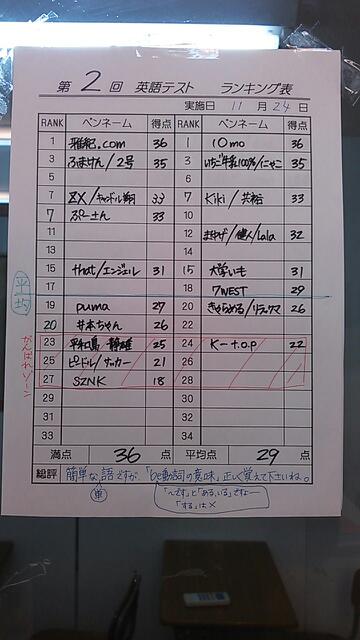 第 2 回 英語テスト ランキング表
実施日 11 月 24 日
RANK ペンネーム 得点 RANK ペンネーム 得点
1 雅紀.com 36 1 10mo 36
3 ふまけん/2号 35 3 いちご牛乳100%/にゃこ 35
5 6
7 ZX/ 33 7 Kiki/ 33
7 ぷーさん 33 10
11 12 /Lala 32
13 14
15 that/エンジェル 31 15 大学いも 31
17 18 7WEST 29
19 puma 27 20 きゃらめる/リラックマ 26
20 井本ちゃん 26 22
23 平和島 静雄 25 24 K-t.o.p 22
25 ピードル/サッカー 21 26
27 SZNK 18 28
29 30
31 32
33 34
満点 36 点 平均点 29 点
総評 簡単な語ですが「be動詞の意味」正しく覚えて下さいね。
単
「〜です」と「ある、いる」ですよー
「する」は×
平均
がんばれゾーン